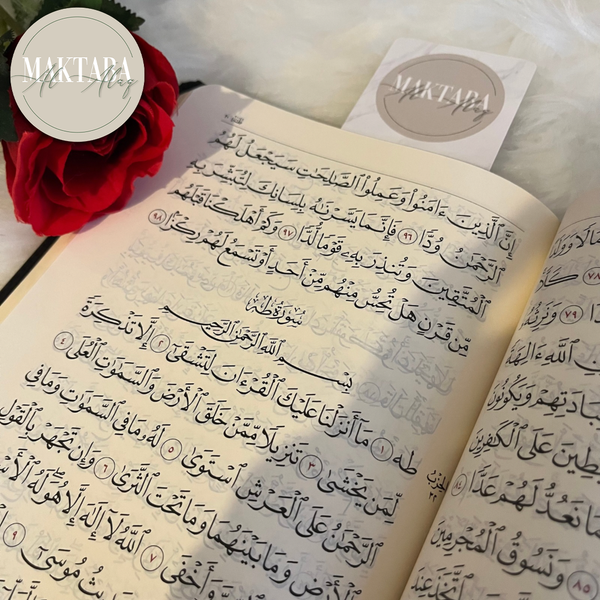 MAKTABA
Al-Alaq
MAKTABA
Al-Alaq
إِنَّ ٱلَّذِينَ ءَامَنُوا۟ وَعَمِلُوا۟ ٱلصَّٰلِحَٰتِ سَيَجْعَلُ لَهُمُ
ٱلرَّحْمَٰنُ وُدًّا ٩٦ فَإِنَّمَا يَسَّرْنَٰهُ بِلِسَانِكَ لِتُبَشِّرَ بِهِ
ٱلْمُتَّقِينَ وَتُنذِرَ بِهِۦ قَوْمًا لُّدًّا ٩٧ وَكَمْ أَهْلَكْنَا قَبْلَهُم
مِّن قَرْنٍ هَلْ تُحِسُّ مِنْهُم مِّنْ أَحَدٍ أَوْ تَسْمَعُ لَهُمْ رِكْزًۢا ٩٨
سُورَةُ طه
بِسْمِ ٱللَّهِ ٱلرَّحْمَٰنِ ٱلرَّحِيمِ
طه ١ مَآ أَنزَلْنَا عَلَيْكَ ٱلْقُرْءَانَ لِتَشْقَىٰٓ ٢ إِلَّا تَذْكِرَةً
لِّمَن يَخْشَىٰ ٣ تَنزِيلًا مِّمَّنْ خَلَقَ ٱلْأَرْضَ وَٱلسَّمَٰوَٰتِ ٱلْعُلَى ٤
ٱلرَّحْمَٰنُ عَلَى ٱلْعَرْشِ ٱسْتَوَىٰ ٥ لَهُۥ مَا فِى ٱلسَّمَٰوَٰتِ وَمَا فِى
ٱلْأَرْضِ وَمَا بَيْنَهُمَا وَمَا تَحْتَ ٱلثَّرَىٰ ٦ وَإِن تَجْهَرْ بِٱلْقَوْلِ
وَأَخْفَى ٧ ٱللَّهُ لَآ إِلَٰهَ إِلَّا هُوَ لَهُ
مُوسَىٰٓ ٩
ٱلْحِزْبُ ٣٢
٧٨
٧٩
ٱللَّهِ ءَالِهَةً
وَيَكُونُونَ
عَلَى ٱلْكَٰفِرِينَ
نَعُدُّ لَهُمْ عَدًّا ٨٤
وَنَسُوقُ ٱلْمُجْرِمِينَ
ٱتَّخَذَ عِندَ
٨٥